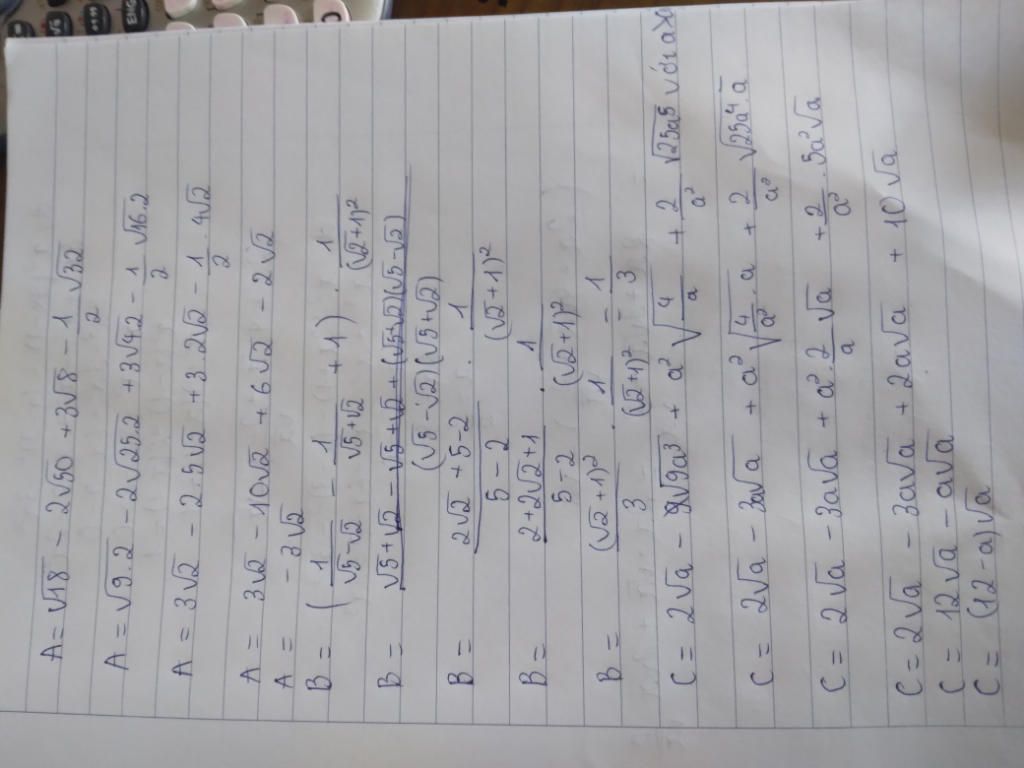 A = √18 - 2√50 + 3√8 - 1/2 √32
A = √9.2 - 2√25.2 + 3√4.2 - 1/2 √16.2
A = 3√2 - 2.5√2 + 3.2√2 - 1/2 . 4√2
A = 3√2 - 10√2 + 6√2 - 2√2
A = -3√2
B = (1/(√5-√2) - 1/(√5+√2) + 1) . 1/(√2+1)²
B = (√5+√2 - √5+√2 + (√5+√2)(√5-√2))/((√5-√2)(√5+√2)) . 1/(√2+1)²
B = (2√2 + 5-2)/(5-2) . 1/(√2+1)²
B = (2+2√2+1)/(5-2) . 1/(√2+1)²
B = (√2+1)²/3 . 1/(√2+1)² = 1/3
C = 2√a - √9a³ + a²√(4/a) + 2/a² √25a⁵ với a>0
C = 2√a - 3a√a + a²√(4/a² . a) + 2/a² √25a⁴.a
C = 2√a - 3a√a + a² . 2/a √a + 2/a² . 5a²√a
C = 2√a - 3a√a + 2a√a + 10√a
C = 12√a - a√a
C = (12-a)√a